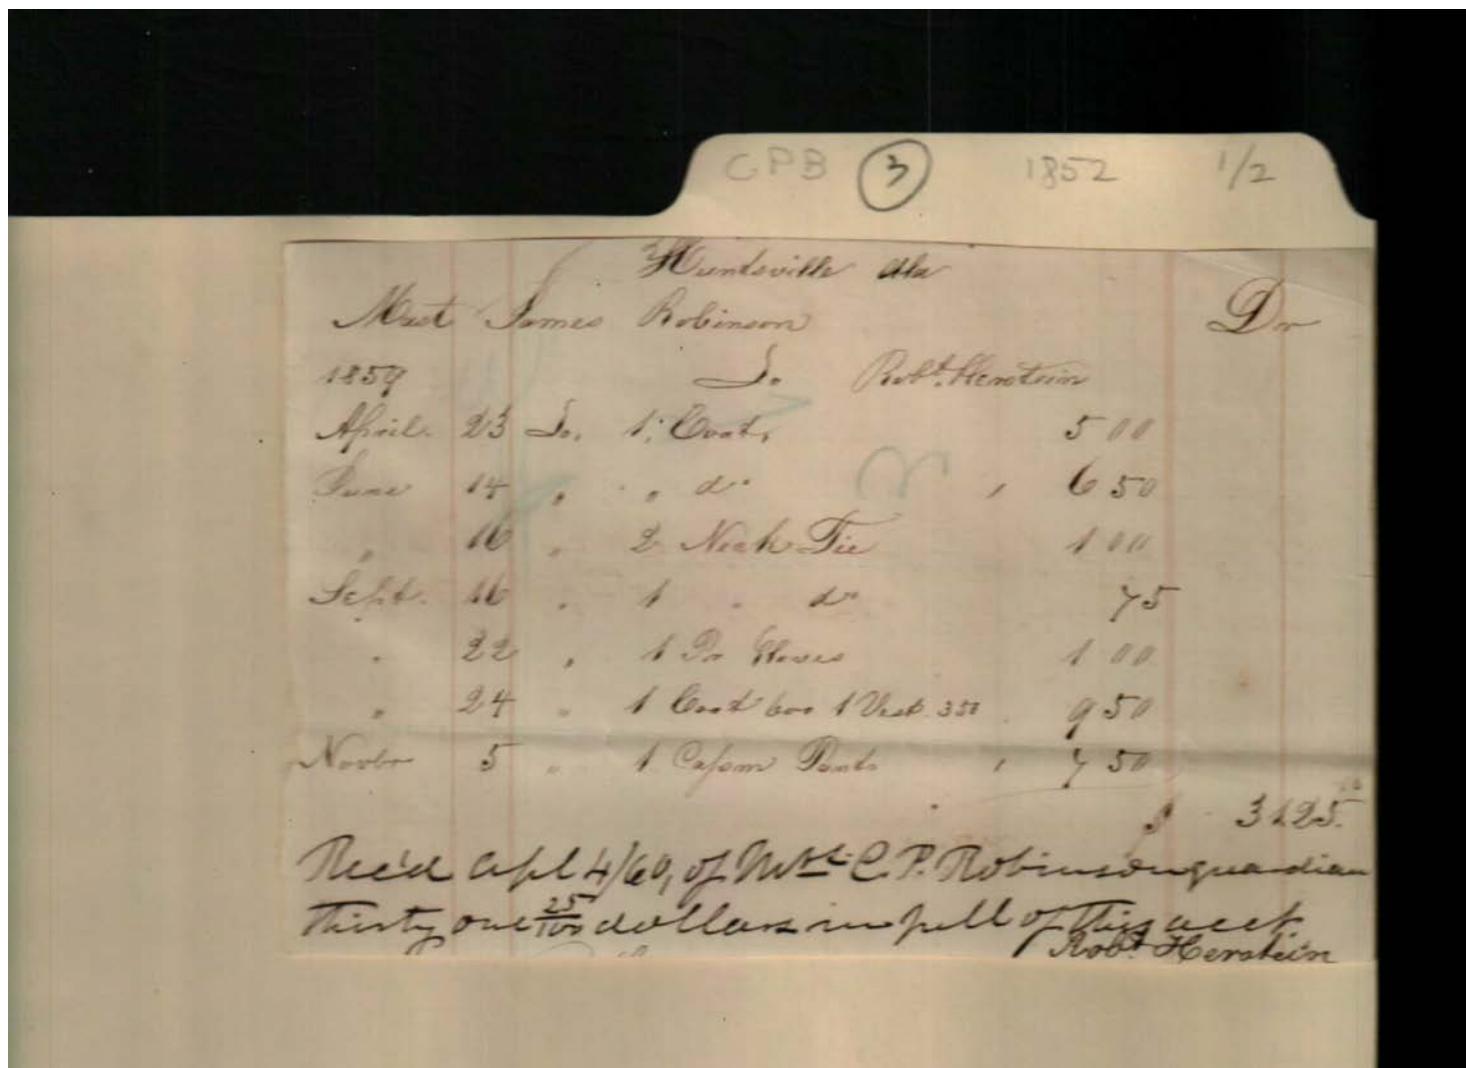 CPB 3 1852 1/2
Huntsville Ala
Mast James Robinson Dr
1859 To Robt. Herstein
April. 23 To. 1 Coat, 5 00
June 14 " " do 6 50
" 16 " 2 Neck Tie 1 00
Sept. 16 " 1 " do 75
" 22 " 1 Pr Gloves 1 00
" 24 " 1 Coat 600 1 Vest. 350 9 50
Novbr 5 " 1 Cassm Pants 7 50
$ 31.25.
Rec'd Apl 4/60, of C. P. Robinson guardian
thirty one 25/100 dollars in full of this acct.
Robt Herstein